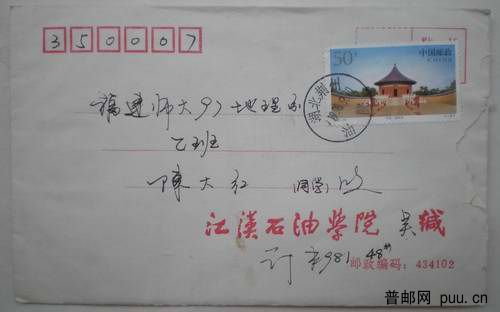 350007
50分
中国邮政
CHINA
湖北
福建师大97地理系
乙班
陈大红 同学 收
江汉石油学院 吴缄
计本981 48#
邮政编码：434102
普邮网 puu.cn